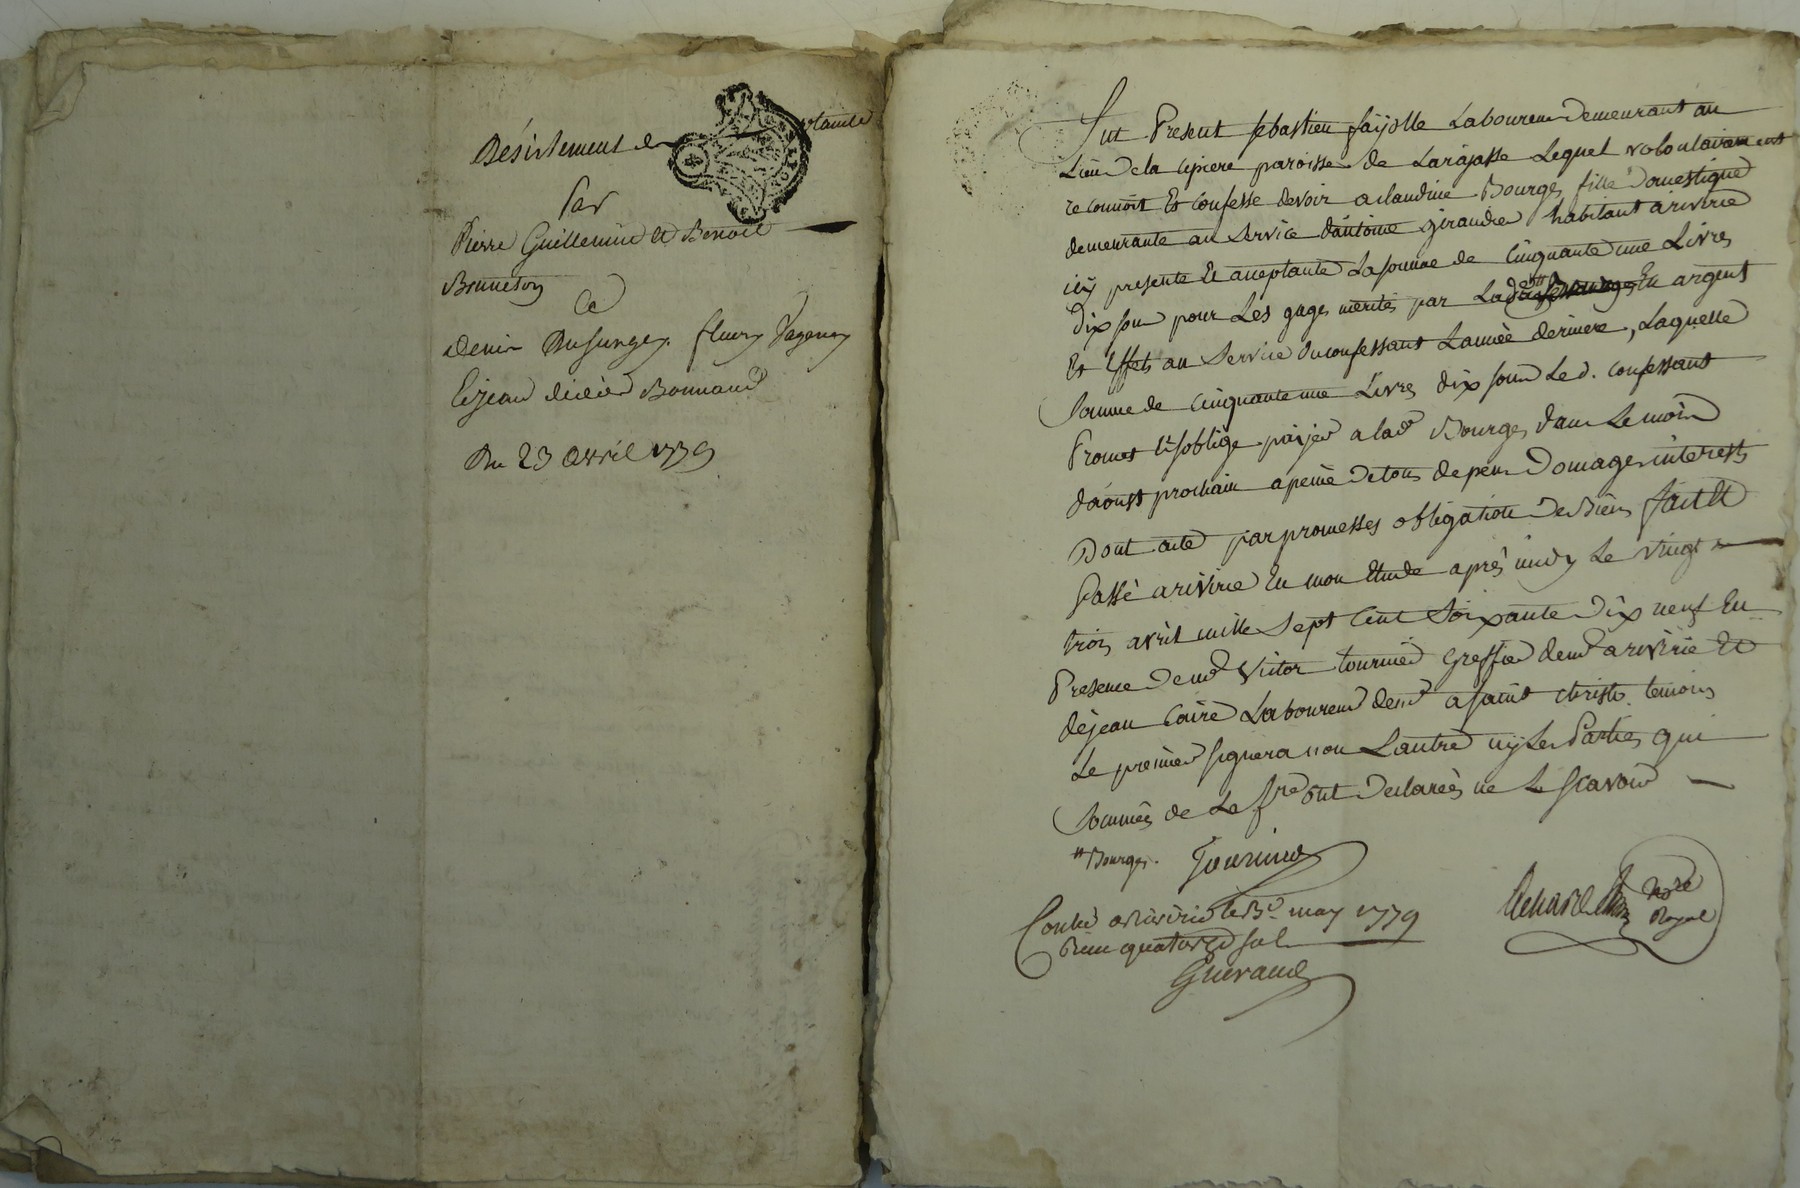 Désistement de plainte
Par
Pierre Guillemin et Benoit
Bruneton
Ce
denis Dusurgey fleury Pageney
Et jean didier Bonnand
Du 23 avril 1779
Fut Present sebastien fayolle Laboureur demeurant au
Lieu de la cipiere paroisse de Larajasse Lequel volontairement
reconnoit Et confesse devoir a claudine Bourges fille Domestique
demeurante au Service d'antoine giraudier habitant a riverie
icy presente Et acceptante La somme de Cinquante une Livres
dix sou pour Les gages mérités par Lade # En argent
Et Effets au Service du confessant L'année derniere, Laquelle
Somme de Cinquante une Livres dix sous Le d. confessant
Promet Et s'oblige païjer a lade Bourges dans Le mois
d'aoust prochain a peine de tous depens Domages interests
Dont acte par promesses obligation de Biens fait Et
Passé a riverie En mon Etude après midy Le vingt
trois avril mille Sept Cent Soixante Dix neuf En
Presence de mr Victor tournier Greffier demt a riverie Et
de jean Caire Laboureur demt a saint christo. temoins
Le premier signera non L'autre ny Les Parties qui
Sommées de Le fre ont Declarées ne Le scavoir
# Bourges. Tournier
Contlé a Riverie le 3e may 1779
Recu quatorze sols
Gueraud
Nore
Royal